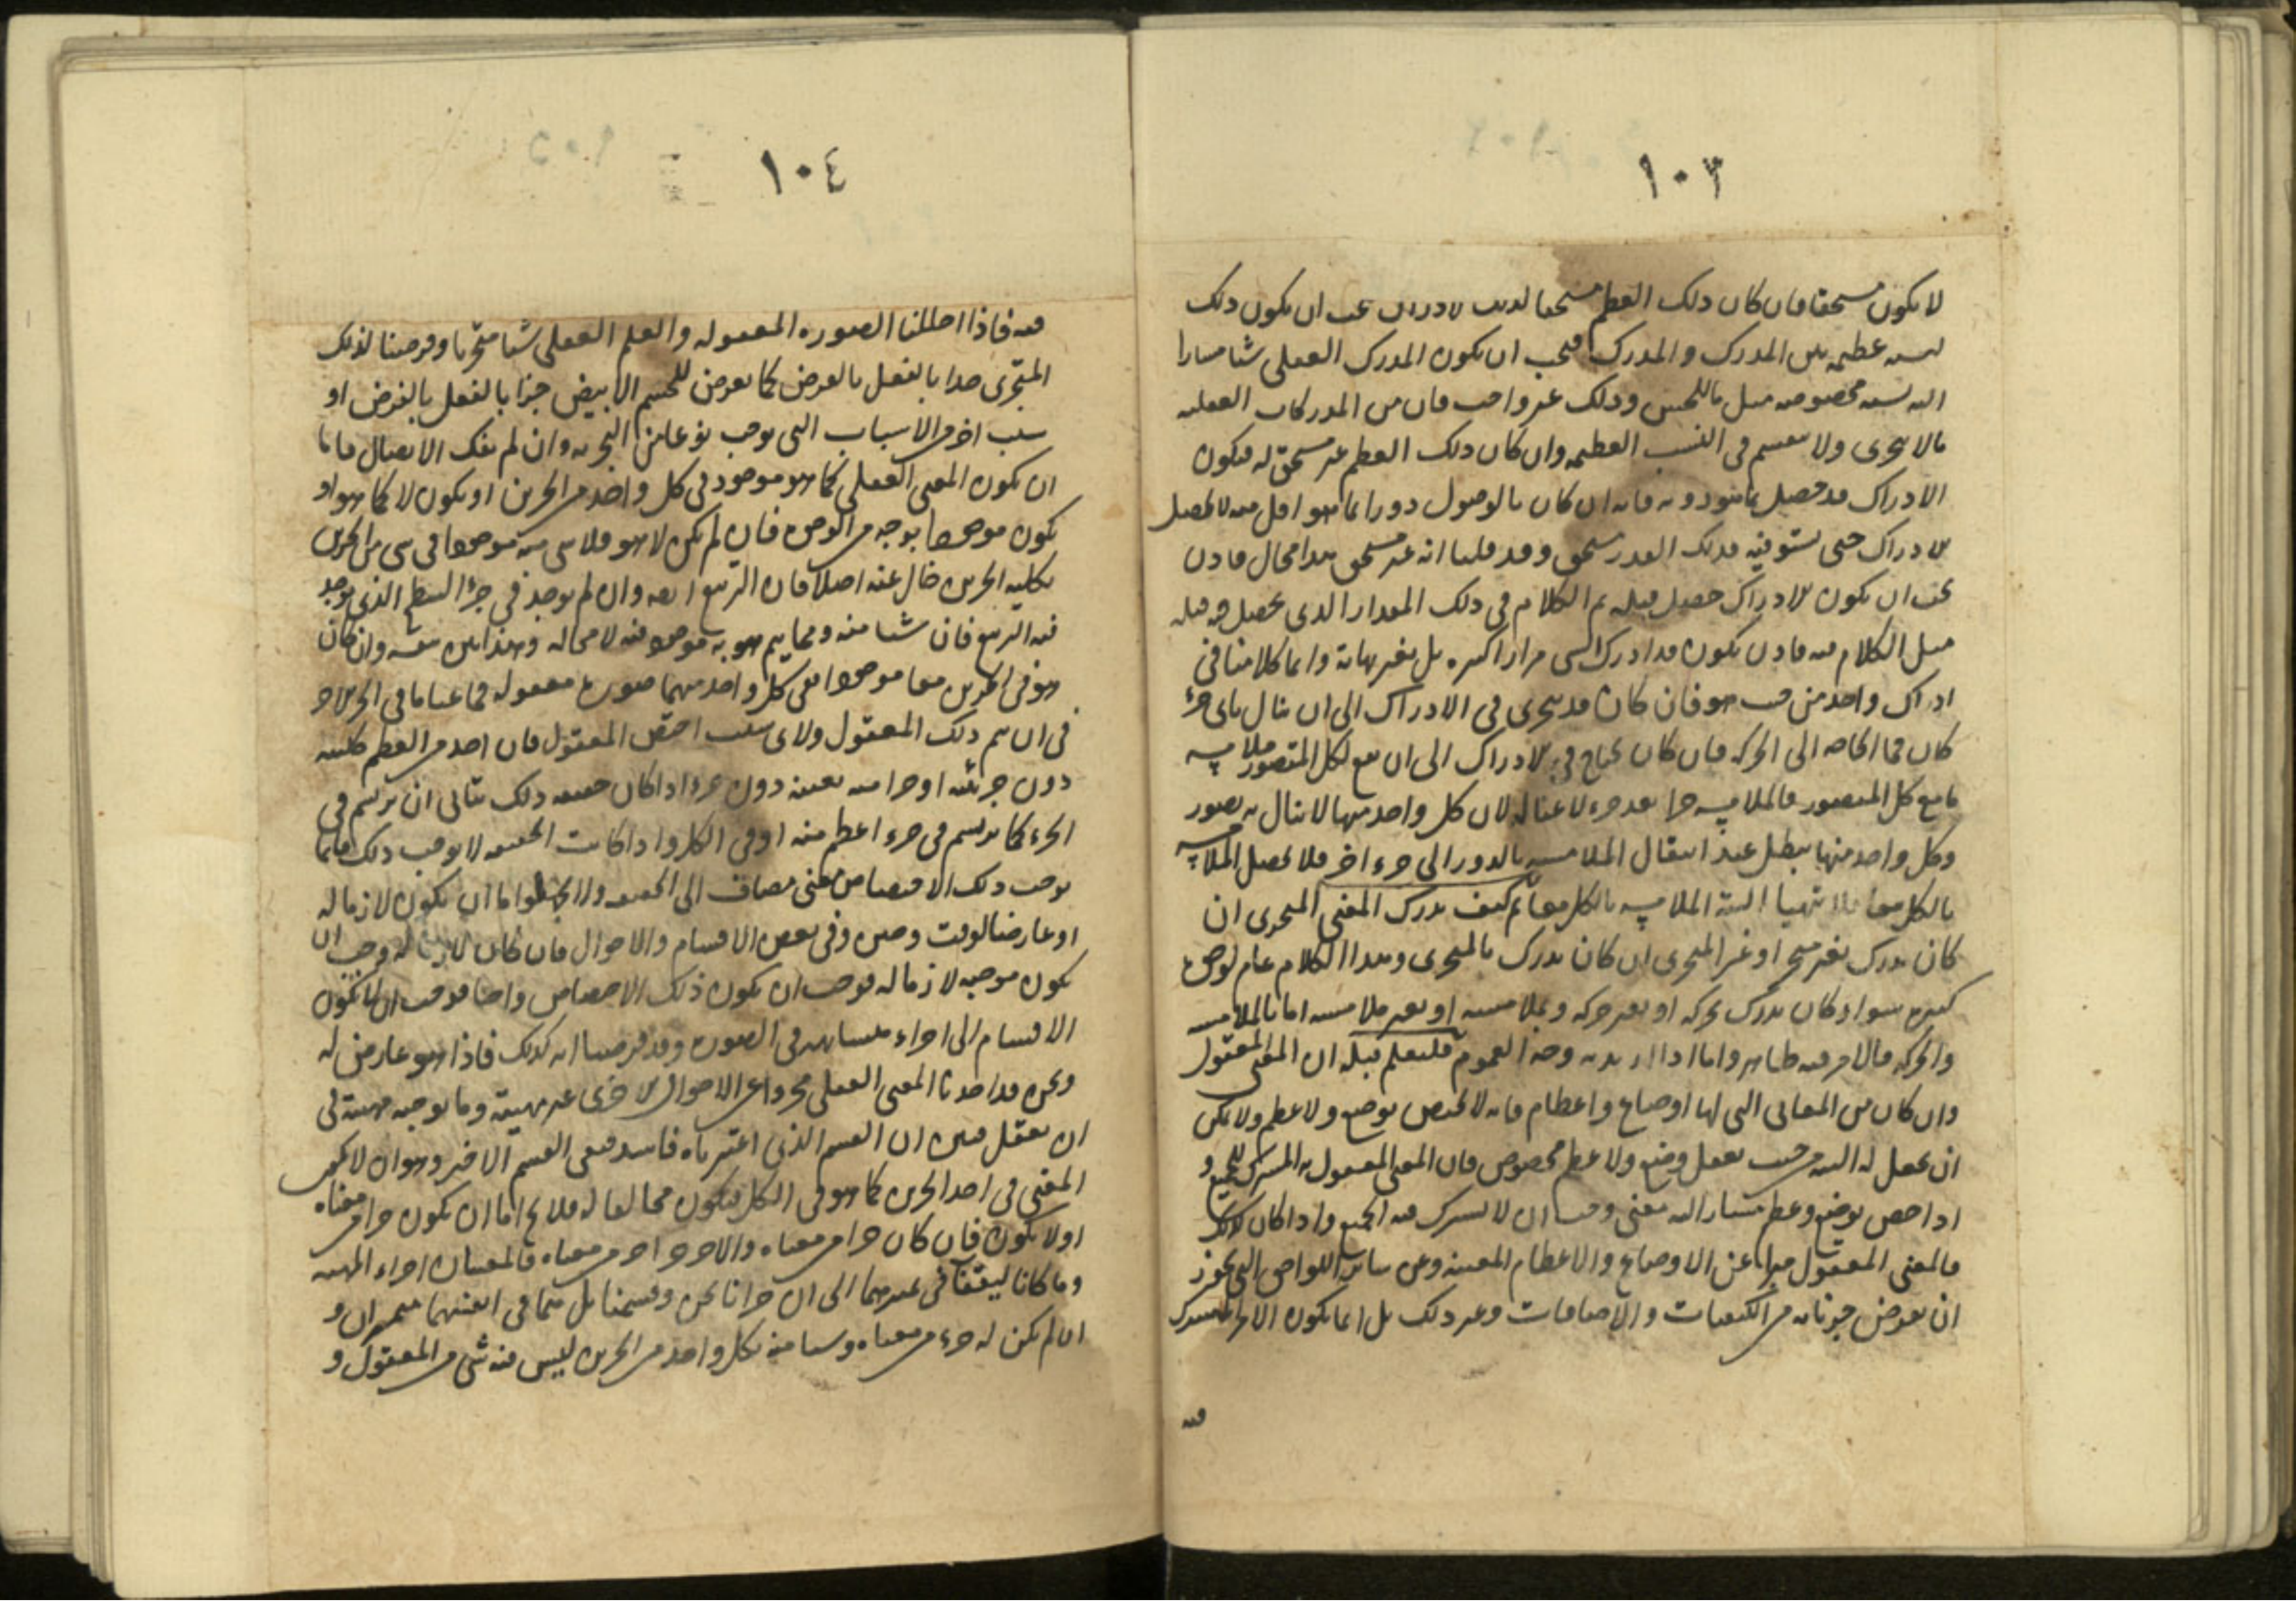 ١٠٣
لا يكون مستحقا فان كان ذلك العظم مستحقا لذلك الادراك يجب ان يكون ذلك
لنسبة عظمية بين المدرك والمدرك فيجب ان يكون المدرك العقلى شيا مشارا
اليه نسبة مخصوصة مثل ما للحس وذلك غير واجب فان من المدركات العقلية
ما لا يتجزى ولا ينقسم فى النسب العظيمة وان كان ذلك العظم غير مستحق له فيكون
الادراك قد حصل بما هو دونه فانه ان كان بالوصول دورا بما هو اقل منه لا يحصل
الادراك حتى يستوفيه فذلك القدر مستحق وقد قلنا انه غير مستحق هذا محال فاذن
يجب ان يكون الادراك حصل قبله ثم الكلام فى ذلك المقدار الذى يحصل فيه قبله
مثل الكلام فيه فاذن يكون قد ادرك الشى مرارا كثيرة بل بغير نهاية وانما كلامنا فى
ادراك واحد من حيث هو فان كان قد يتجزى فى الادراك الى ان ينال باى جزء
كان فما الحاجة الى الحركة فان كان يحتاج فى الادراك الى ان يقع لكل المتصور ملامسة
مامع كل المتصور فالملامسة جزا بعد جزء لا غنا له لان كل واحد منها لا ينال به تصور
وكل واحد منها يبطل عند انتقال الملامسة بالدور الى جزء اخر فلا يحصل الملامسة
بالكل معا فلا تتهيا البتة الملامسة بالكل معا ثم كيف يدرك المعنى المتجزى ان
كان يدرك بغير متجز او غير المتجزى ان كان يدرك بالمتجزى وهذا الكلام عام لوجوه
كثيرة سواء كان يدرك بحركة او بغير حركة وبملامسة او بغير ملامسة اما بالملامسة
والحركة فالامر فيه ظاهر واما اذا اريد به وجه العموم فليعلم قبله ان المعنى المعقول
وان كان من المعانى التى لها اوضاع واعظام فانه لا يختص بوضع ولا عظم ولا يمكن
ان يجعل له البتة من حيث يعقل وضع ولا عظم مخصوص فان المعنى المعقول به المشترك للجميع و
اذا خص بوضع وعظم مشار اليه معنى وجب ان لا يشترك فيه الجميع واذا كان كذلك
فالمعنى المعقول مبرا عن الاوضاع والاعظام المعينة وعن ساير اللواحق التى يجوز
ان تعرض جزئياته من الكيفيات والاضافات وغير ذلك بل انما يكون الامر المشترك
فيه
١٠٤
فيه فاذا احللنا الصورة المعقولة والعلم العقلى شيا متجزيا وفرضنا لذلك
المتجزى جزا بالفعل بالعرض كما يعرض للجسم الابيض جزا بالفعل بالفرض او
سبب اخر من الاسباب التى يوجب نوعا من التجزية وان لم يفك الاتصال فاما
ان يكون المعنى العقلى كما هو موجود فى كل واحد من الجزين او يكون لا كما هو او
يكون موجودا بوجه من الوجوه فان لم يكن لا هو فلا شى منه موجودا فى شى من الجزين
بكلية الجزين خال عنه اصلا فان التربيع ايضه وان لم يوجد فى جزء السطح الذى يوجد
فيه التربيع فان شيا منه ومما يتم هو به موجود فيه لا محالة وهذا بين بنفسه وان كان
هو فى الجزين معا موجودا ففى كل واحد منهما صورة معقولة فما غنا ما فى الجزء الاخر
فى ان يتم ذلك المعقول ولاى سبب اختص المعقول فان احد من العظم كليته
دون جزئيته او جزا منه بعينه دون جزء اذا كان حقيقة ذلك يتاتى ان يرتسم فى
الجزء كما يرتسم فى جزء اعظم منه او فى الكل واذا كانت الحقيقة لا يوجب ذلك فانما
يوجب ذلك الاختصاص معنى مضاف الى الحقيقة ولا يخلوا اما ان يكون لازما له
او عارضا لوقت وحين وفى بعض الاقسام والاحوال فان كان لازما له وجب ان
يكون موجبه لازما له فوجب ان يكون ذلك الاختصاص واجبا فوجب ان لا يكون
الاقسام الى اجزاء متشابهة فى الصورة وقد فرضنا انه كذلك فاذا هو عارض له
ونحن قد اخذنا المعنى العقلى مجردا عن الاحوال الاخرى غير مهيته وما يوجبه مهيته فى
ان يعقل فبين ان القسم الذى اعتبرناه فاسد فبقى القسم الاخير وهو ان لا يكون
المعنى فى احد الجزين كما هو فى الكل فيكون مخالفا له فلا يخ اما ان يكون جزا من معناه
او لا يكون فان كان جزا من معناه والاخر جزا اخر من معناه فالمعنيان اجزاء المهية
وما كانا ليتفقا فى غيرهما الى ان جزانا نحن وقسمنا بل هما فى انفسهما متميزان و
ان لم يكن له جزء من معناه وشيا منه بكل واحد من الجزين ليس فيه شى من المعقول و